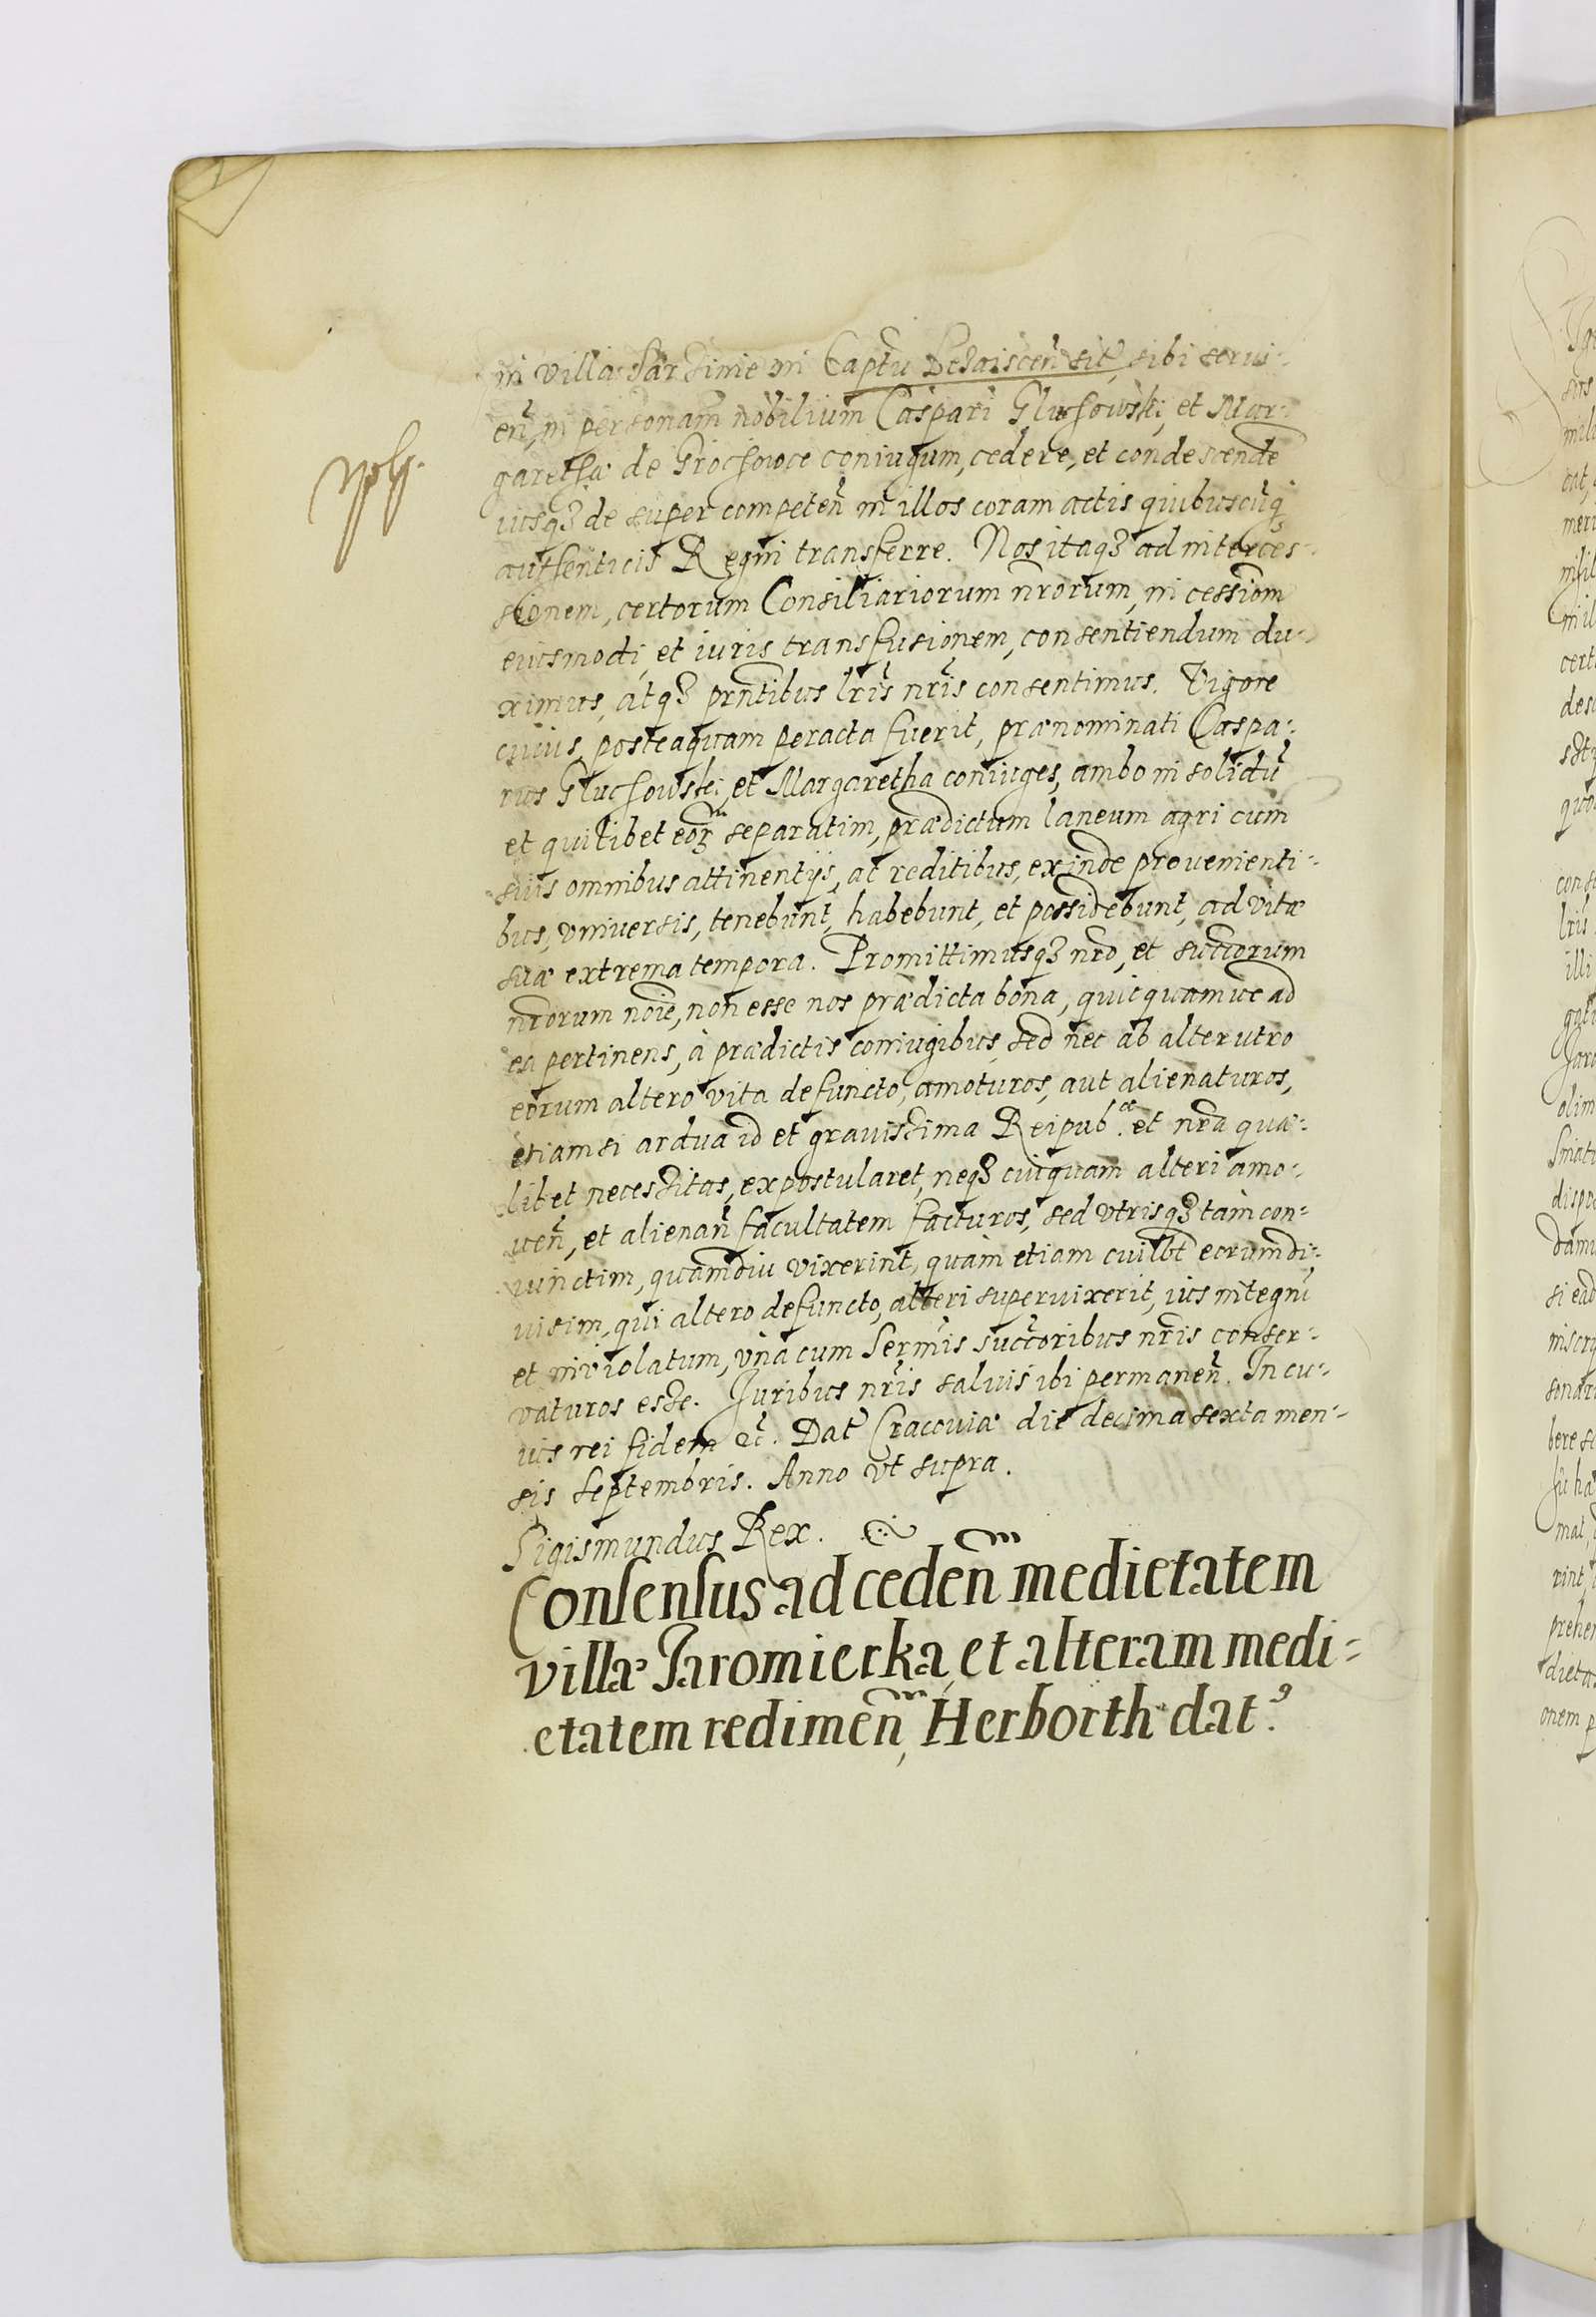 in villa in Captu sit sibi serui-
en, in personam nobilium Caspari Gluchowski, et Mar-
garetha de Grochowce coniugum, cedere, et condescende
iusq3 de super competen in illos coram actis quibuscuq
authenticis Regni transferre. Nos itaq3 ad interces-
sionem, certorum Consiliariorum nrorum, in cessiom
eiusmodi, et iuris transfusionem, consentiendum du-
ximus, atq3 prntibus lris nris consentimus. Vigore
cuius, posteaquam peracta fuerit, prænominati Caspa-
rus Gluchowski, et Margaretha coniuges, ambo in solidu
et quilibet eor3 separatim, prædictum laneum agri cum
suis omnibus attinentijs, ac reditibus, exinde prouenienti-
bus, vniuersis, tenebunt, habebunt, et possidebunt, ad vitæ
suæ extrema tempora. Promittimusq3 nro, et succorum
nrorum noie, non esse nos prædicta bona, quicquamue ad
ea pertinens, à prædictis coniugibus, sed nec ab alterutro
eorum altero vita defuncto, amoturos, aut alienaturos,
etiamsi ardua id et grauissima Reipub.cæ et nra quæ-
libet necessitas, expostularet, neq3 cuiquam alteri amo-
uen, et alienan facultatem facturos, sed vtrisq3 tàm con-
iunctim, quamdiu vixerint, quàm etiam cuilbt eorum di-
uisim, qui altero defuncto, alteri superuixerit, ius integru
et inuiolatum, vna cum Sermis succoribus nris conser-
vaturos esse. Juribus nris saluis ibi permanen. In cu-
ius rei fidem &c. Dat Cracouiæ die decima sexta men-
sis Septembris. Anno vt supra.
Sigismundus Rex.
Consensus ad ceden medietatem
villæ Jaromierka, et alteram medi-
etatem redimen, Herborth dat9.